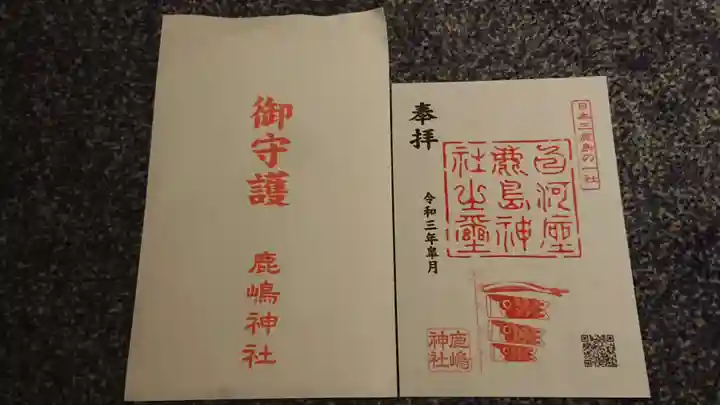 御守護
鹿嶋神社
日本三鹿島の一社
奉拝
白河座
鹿島神
社之璽
令和三年皐月
鹿嶋
神社